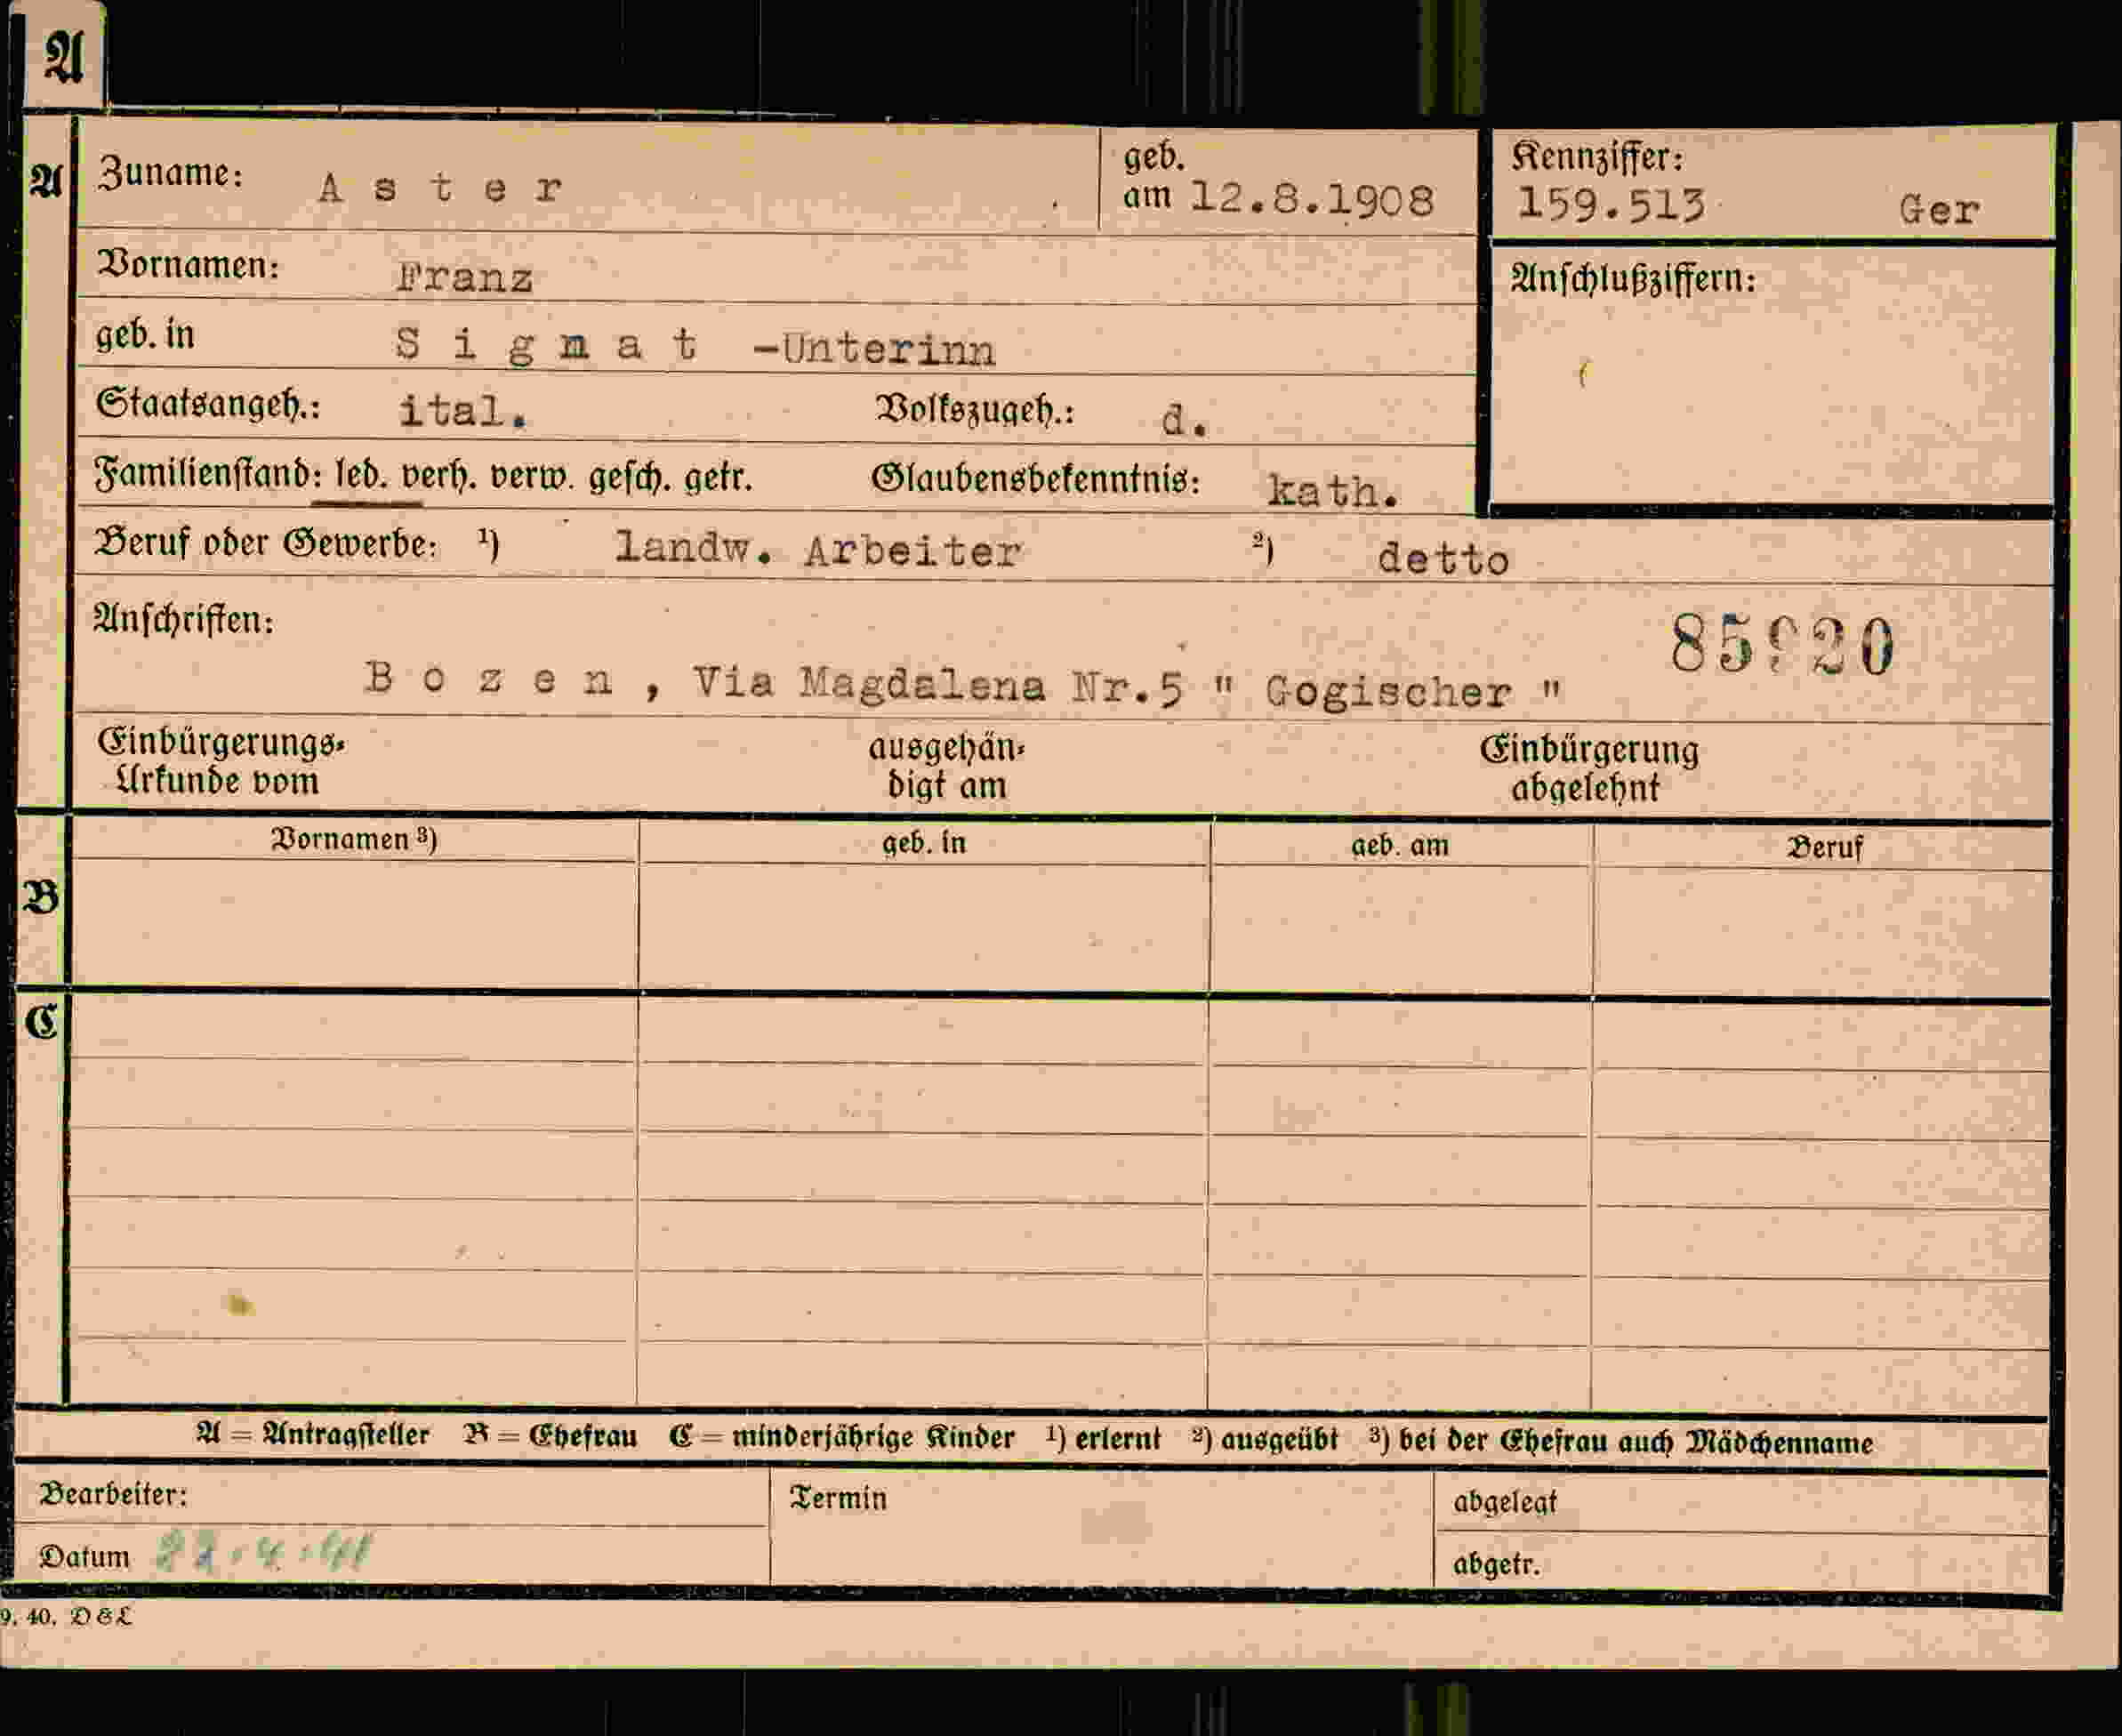 A
A Zuname: A s t e r geb. am 12.8.1908 Kennziffer: 159.513 Ger
Vornamen: Franz Anschlußziffern:
geb. in S i g m a t -Unterinn
Staatsangeh.: ital. Volkszugeh.: d.
Familienstand: led. verh. verw. gesch. getr. Glaubensbekenntnis: kath.
Beruf oder Gewerbe: ¹) landw. Arbeiter ²) detto
Anschriften:
B o z e n , Via Magdalena Nr.5 " Gogischer "
Einbürgerungs- ausgehän- Einbürgerung
Urkunde vom digt am abgelehnt
Vornamen ³) geb. in geb. am Beruf
B
C
A = Antragsteller B = Ehefrau C = minderjährige Kinder ¹) erlernt ²) ausgeübt ³) bei der Ehefrau auch Mädchenname
Bearbeiter: Termin abgelegt
Datum abgetr.
9. 40. D&L